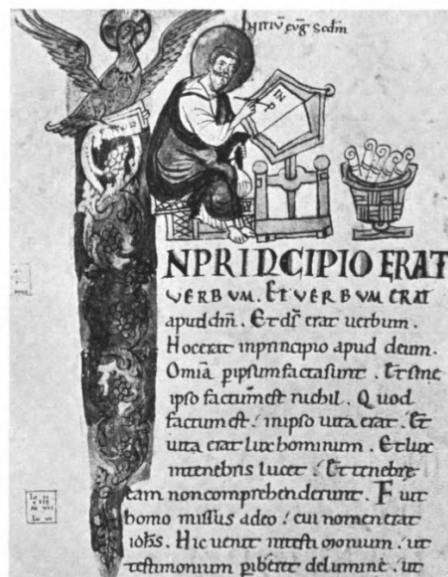 INITIU EVG SCDM
IN P
NPRINCIPIO ERAT
VERBVM. ET VERBVM ERAT
apud dm. Et ds erat uerbum.
Hoc erat inprincipio apud deum.
Omia p ipsum facta sunt. Et sine
ipso factum est nichil. Quod
factum est: inipso uita erat. Et
uita erat lux hominum. Et lux
intenebris lucet. Et tenebre
eam non comprehenderunt. Fuit
homo missus adeo: cui nomen erat
iohs. Hic uenit intestimonium. ut
testimonium pibetet delumine. ut